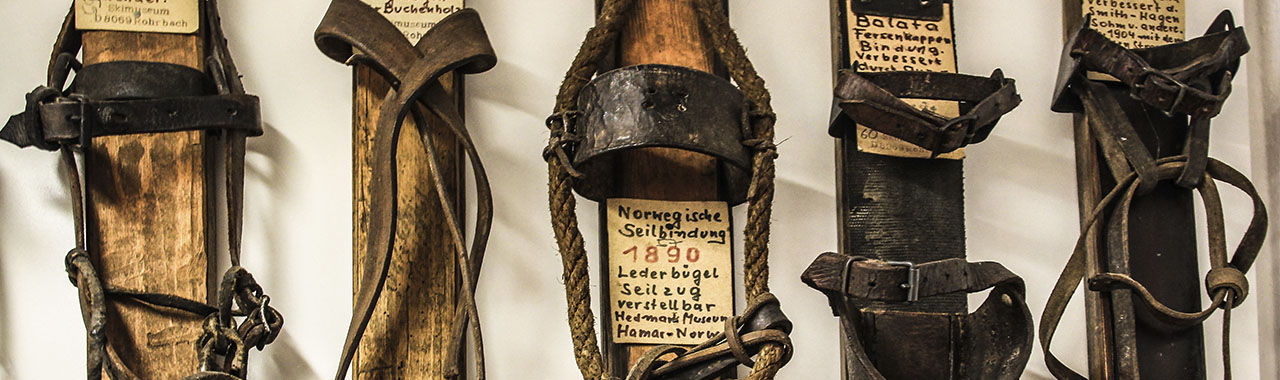 Skimuseum
D8069 Rohrbach
Buchenholz
Norwegische
Seilbindung
1890
Lederbügel
Seilzug
verstellbar
Hedmarks Museum
Hamar-Norw
Balata
Fersenkappen
Bindung.
Verbessert
durch
verbessert
Smith-Hagen
Sohm u. andere
1904 mit dem